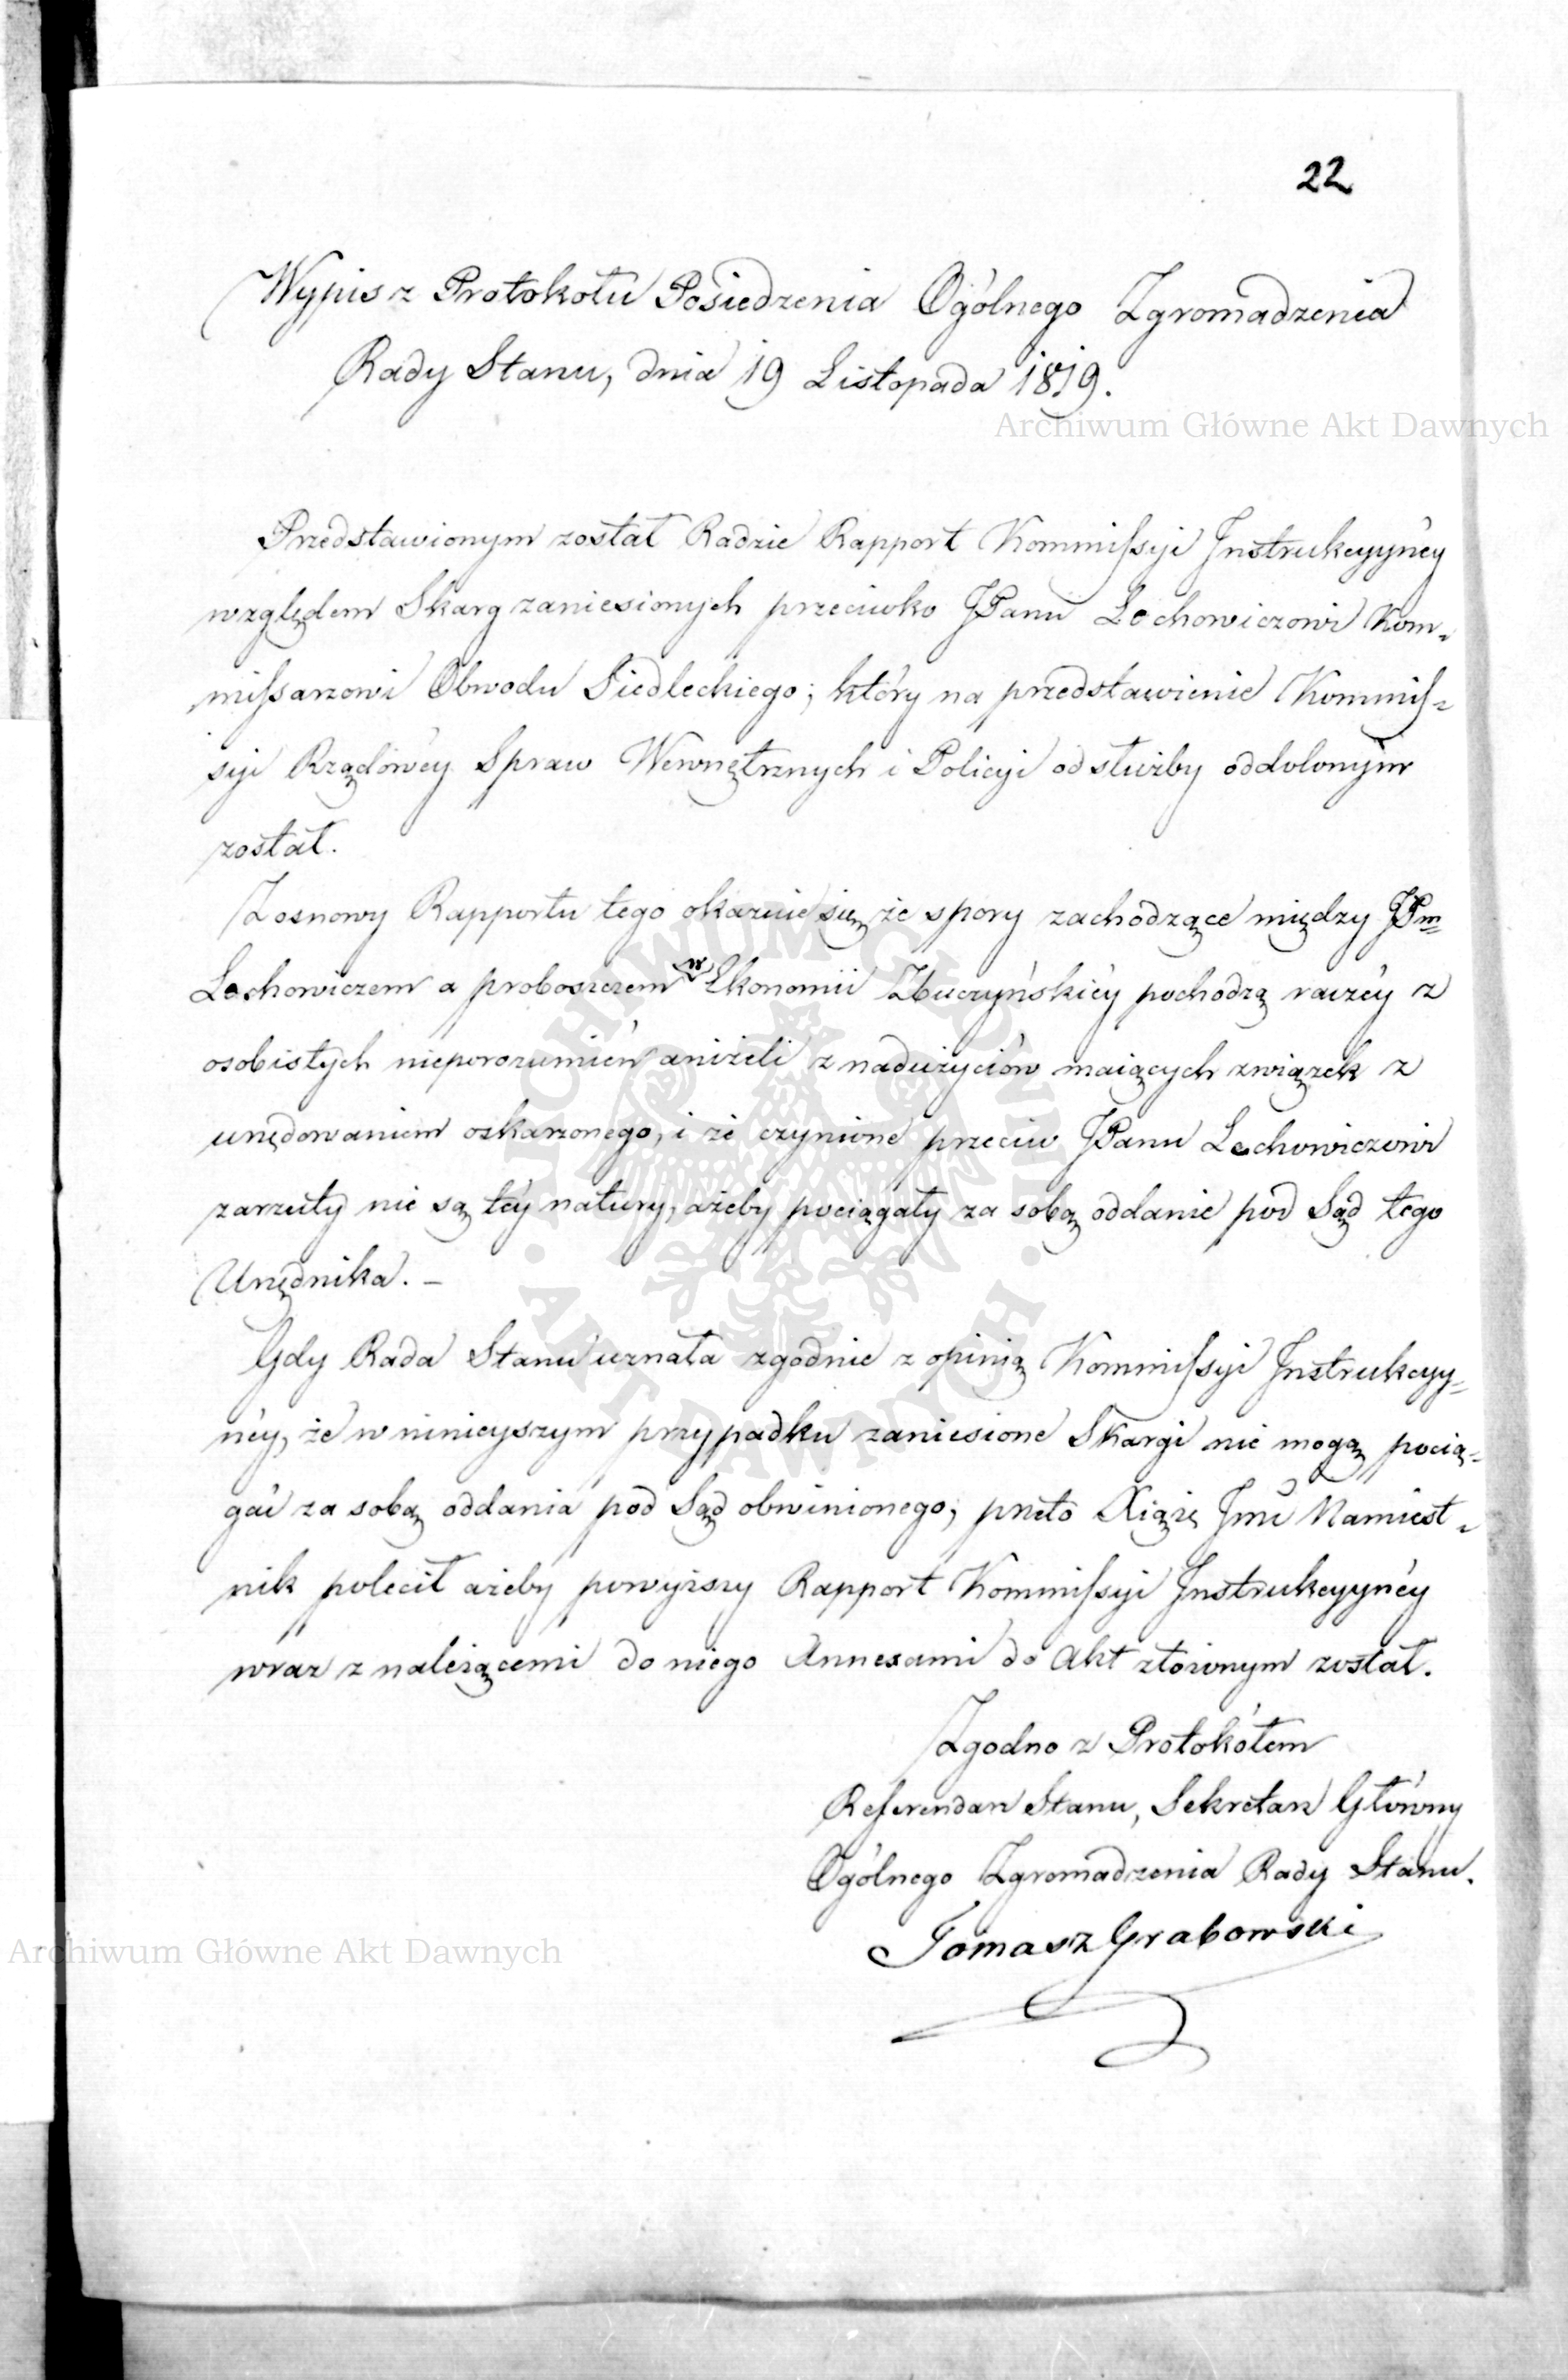 22
Wypis z Protokołu Posiedzenia Ogólnego Zgromadzenia
Rady Stanu, dnia 19 Listopada 1819.
Archiwum Główne Akt Dawnych
Przedstawionym został Radzie Rapport Kommissyi Instrukcyyney
względem Skarg zaniesionych przeciwko JPanu Lechowiczowi Kom-
missarzowi Obwodu Siedleckiego; który na przedstawienie Kommis-
syi Rządowey Spraw Wewnętrznych i Policyi od służby oddolonym
został.
Z osnowy Rapportu tego okazuie się, że spory zachodzące między JPm
Lechowiczem a proboszczem w Ekonomii Zbuczyńskiéy pochodzą raczéy z
osobistych nieporozumień aniżeli z nadużyciów maiących związek z
urzędowaniem oskarzonego, i że czynione przeciw JPanu Lechowiczowi
zarzuty nie są téy natury, ażeby pociągały za sobą oddanie pod Sąd tego
Urzędnika. –
Gdy Rada Stanu uznała zgodnie z opinią Kommissyi Instrukcyy-
néy, że w ninieyszym przypadku zaniesione Skargi nie mogą pocią-
gać za sobą oddania pod Sąd obwinionego; przeto Xiąże Jmć Namiest-
nik polecił ażeby powyższy Rapport Kommissyi Instrukcyynéy
wraz z należącemi do niego Annexami do Akt złożonym został.
Zgodno z Protokółem
Referendarz Stanu, Sekretarz Główny
Ogólnego Zgromadzenia Rady Stanu.
Tomasz Grabowski
Archiwum Główne Akt Dawnych
ARCHIWUM GŁÓWNE · AKT DAWNYCH ·